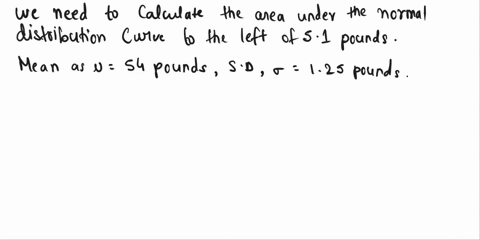 we need to Calculate the area under the normal
distribution Curve to the left of 5.1 pounds.
Mean as υ = 54 pounds, S.D, σ = 1.25 pounds.